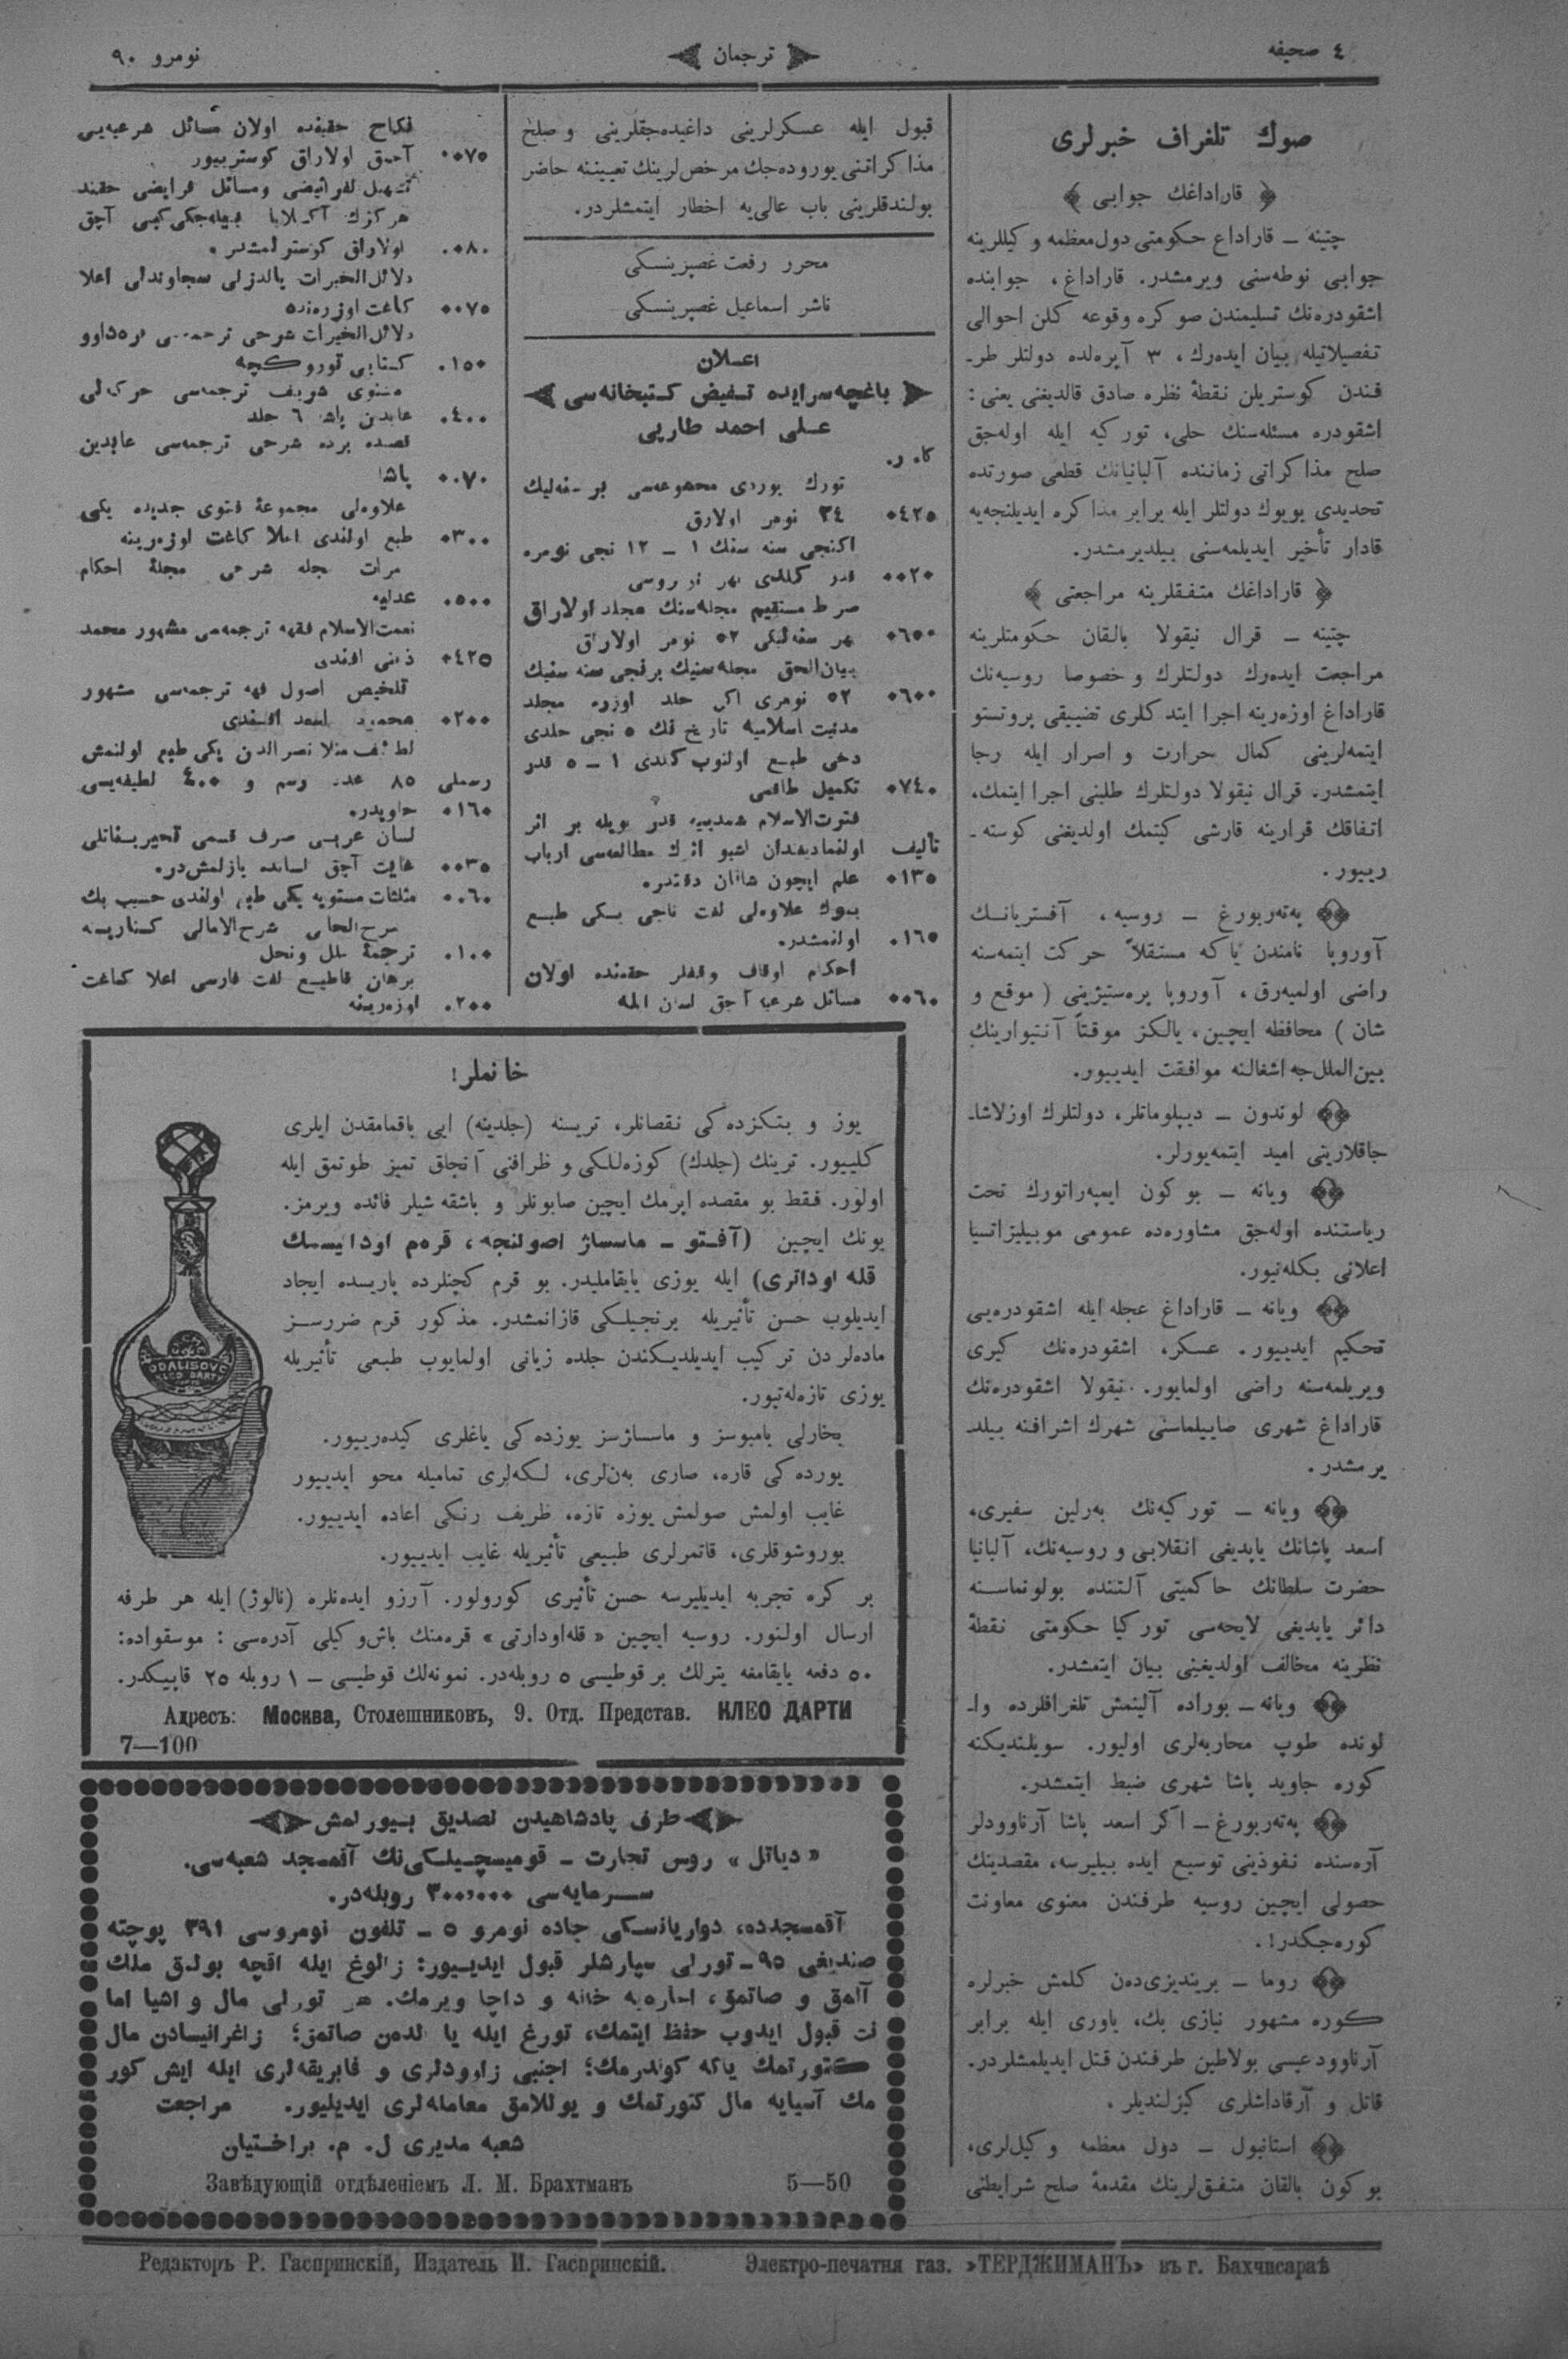 ٤ صحیفه
ترجمان
نومرو ٩٠
صوك تلغراف خبرلری
﴿ قاراداغك جوابی ﴾
چتینه ـ قاراداغ حكومتی دول معظمه وكیللرینه
جوابی نوطه‌سنی ویرمشدر. قاراداغ، جوابنده
اشقودره‌نك تسلیمندن صوكره وقوعه كلن احوالی
تفصیلاتیله بیان ایده‌رك، ٣ آپره‌لده دولتلر طر۔
فندن كوستریلن نقطۀ نظره صادق قالدیغنی یعنی:
اشقودره مسئله‌سنك حلی، توركیه ایله اوله‌جق
صلح مذاكراتی زماننده آلبانیانك قطعی صورتده
تحدیدی بویوك دولتلر ایله برابر مذاكره ایدیلنجه‌یه
قادار تأخیر ایدیلمه‌سنی بیلدیرمشدر.
﴿ قاراداغك متفقلرینه مراجعتی ﴾
چتینه ـ قرال نیقولا بالقان حكومتلرینه
مراجعت ایده‌رك دولتلرك و خصوصا روسیه‌نك
قاراداغ اوزه‌رینه اجرا ایتدكلری تضییقی پروتستو
ایتمه‌لرینی كمال حرارت و اصرار ایله رجا
ایتمشدر. قرال نیقولا دولتلرك طلبنی اجرا ایتمك،
اتفاقك قرارینه قارشی كیتمك اولدیغنی كوسته ـ
رییور.
په‌ته‌ربورغ ـ روسیه، آفستریانك
آوروپا نامندن یاكه مستقلاً حركت ایتمه‌سنه
راضی اولمیه‌رق، آوروپا پره‌ستیژینی ( موقع و
شان ) محافظه ایچین، یالكز موقتاً آنتیوارینك
بین‌الملل‌جه اشغالنه موافقت ایدییور.
لوندون ـ دیپلوماتلر، دولتلرك اوزلاشا۔
جاقلارینی امید ایتمه‌یورلر.
ویانه ـ بوكون ایمپه‌راتورك تحت
ریاستنده اوله‌جق مشاوره‌ده عمومی موبیلیزاتسیا
اعلانی بكله‌نیور.
ویانه ـ قاراداغ عجله ایله اشقودره‌یی
تحكیم ایدییور. عسكر، اشقودره‌نك كیری
ویریلمه‌سنه راضی اولمایور. نیقولا اشقودره‌نك
قاراداغ شهری صاییلماسنی شهرك اشرافنه بیلد۔
یرمشدر.
ویانه ـ توركیه‌نك به‌رلین سفیری،
اسعد پاشانك یاپدیغی انقلابی و روسیه‌نك، آلبانیا
حضرت سلطانك حاكمیتی آلتنده بولونماسنه
دائر یاپدیغی لایحه‌سی توركیا حكومتی نقطۀ
نظرینه مخالف اولدیغینی بیان ایتمشدر.
ویانه ـ بوراده آلینمش تلغرافلرده وا۔
لونده طوپ محاربه‌لری اولیور. سویلندیكنه
كوره جاوید پاشا شهری ضبط ایتمشدر.
په‌ته‌ربورغ ـ اكر اسعد پاشا آرناوودلر
آره‌سنده نفوذینی توسیع ایده بیلیرسه، مقصدینك
حصولی ایچین روسیه طرفندن معنوی معاونت
كوره‌جكدر!.
روما ـ بریندیزی‌ده‌ن كلمش خبرلره
كوره مشهور نیازی بك، یاوری ایله برابر
آرناوود عیسی بولاطین طرفندن قتل ایدیلمشلردر.
قاتل و آرقاداشلری كیزلندیلر.
استانبول ـ دول معظمه وكیل‌لری،
بوكون بالقان متفق‌لرینك مقدمۀ صلح شرایطنی
قبول ایله عسكرلرینی داغیده‌جقلرینی و صلح
مذاكراتنی یوروده‌جك مرخص‌لرینك تعییننه حاضر
بولندقلرینی باب عالی‌یه اخطار ایتمشلردر.
محرر رفعت غصپرینسكی
ناشر اسماعیل غصپرینسكی
اعلان
باغچه‌سرایده تفیض كتبخانه‌سی
علی احمد طارپی
تورك یوردی مجموعه‌سی بر سنه‌لیك
٢٤ نومر اولارق ٠٤٢٥
اكنجی سنه سنك ١ ـ ١٢ نجی نومره
٠٠٢٠
صرط مستقیم مجله‌سنك مجلد اولاراق
هر سنه‌لیكی ٥٢ نومر اولاراق ٠٦٥٠
بیان‌الحق مجله‌سنیك برنجی سنه سنیك
٥٢ نومری اكی جلد اوزره مجلد ٠٦٠٠
مدنیت اسلامیه تاریخ نك ٥ نجی جلدی
دخی طبع اولنوب كلدی ١ ـ ٥ قدر
تكمیل طاقمی ٠٧٤٠
فترت‌الاسلام شمدییه قدر بویله بر اثر
تألیف اولنمادیغندان اشبو اثرك مطالعه‌سی ارباب
علم ایچون شایان دقتدر. ٠١٣٥
بیوك علاوه‌لی لغت ناجی یكی طبع
اولنمشدر. ٠١٦٥
احكام اوقاف وقفلر حقنده اولان
مسائل شرعیه آچق لسان ایله ٠٠٦٠
نكاح حقنده اولان مسائل شرعیه‌یی
آچق اولاراق كوسترییور ٠٠٧٥
تسهیل الفرائیضی ومسائل فرایضی حقند
هركزك آكلایا بیله‌جكی كبی آچق
اولاراق كوسترلمشدر. ٠٠٨٠
دلائل‌الخیرات یالدزلی سجاوندلی اعلا
كاغت اوزره‌نده ٠٠٧٥
دلائل‌الخیرات شرحی
كتابی توروكچه ٠١٥٠
مثنوی شریف ترجمه‌سی حركه‌لی
عابدین پاشا ٦ جلد ٠٤٠٠
قصده برده شرحی ترجمه‌سی عابدین
پاشا ٠٠٧٠
علاوه‌لی مجموعۀ فتوی جدیده یكی
طبع اولندی اعلا كاغت اوزه‌رینه ٠٣٠٠
مرات مجله شرحی مجلۀ احكام
عدلیه ٠٥٠٠
نعمت‌الاسلام فقهه ترجمه‌سی مشهور محمد
ذهنی افندی ٠٤٢٥
تلخیص اصول فقه ترجمه‌سی مشهور
محمود اسعد افندی ٠٢٠٠
لطائف منلا نصرالدین یكی طبع اولنمش
رسملی ٨٥ عدد رسم و ٤٠٠ لطیفه‌یسی
حاویدر. ٠١٦٠
لسان عربی صرف قسمی تحیریفاتلی
غایت آچق لسانده یازلمش‌در. ٠٠٣٥
مثلثات مستویه یكی طبع اولندی حسیب بك ٠٠٦٠
شرح‌الامالی كناریسنه
ترجمۀ ملل ونحل ٠١٠٠
برهان قاطیع لغت فارسی اعلا كاغت
اوزه‌رینه ٠٢٠٠
خانملر!
یوز و بتكزده‌كی نقصانلر، تریسنه (جلدینه) ایی باقمامقدن ایلری
كلییور. ترینك (جلدك) كوزه‌للكی و ظرافتی آنجاق تمیز طوتمق ایله
اولور. فقط بو مقصده ایرمك ایچین صابونلر و باشقه شیلر فائده ویرمز.
بونك ایچین (آفتو ـ ماسساژ اصولنجه، قره‌م اودالیسك
قله اودارتری) ایله یوزی یایقاملیدر. بو قرم كچنلرده پاریسده ایجاد
ایدیلوب حسن تأثیریله برنجیلكی قازانمشدر. مذكور قرم ضررسز
ماده‌لردن تركیب ایدیلدیكندن جلده زیانی اولمایوب طبعی تأثیریله
یوزی تازه‌له‌تیور.
بخارلی بامبوسز و ماسساژسز یوزده‌كی یاغلری كیده‌رییور.
یورده‌كی قاره، صاری به‌ن‌لری، لكه‌لری تمامیله محو ایدییور
غایب اولمش صولمش یوزه تازه، ظریف رنكی اعاده ایدییور.
بوروشوقلری، قاتمرلری طبیعی تأثیریله غایب ایدییور.
بر كره تجربه ایدیلیرسه حسن تأثیری كورولور. آرزو ایده‌نلره (نالوژ) ایله هر طرفه
ارسال اولنور. روسیه ایچین «قله‌اودارتی» قره‌منك باش‌وكیلی آدره‌سی: موسقواده:
٥٠ دفعه یایقامغه یترلك بر قوطیسی ٥ روبله‌در. نمونه‌لك قوطیسی ـ ١ روبله ٢٥ قاپیكدر.
Адресъ: Москва, Столешниковъ, 9. Отд. Представ. КЛЕО ДАРТИ
7—100
طرف پادشاهیدن تصدیق بیورلمش
«دیاتل» روس تجارت ـ قومیسچیلكی‌نك آقمسجد شعبه‌سی.
سرمایه‌سی ٣٠٠،٠٠٠ روبله‌در.
آقمسجدده، دواریانسكی جاده نومرو ٥ ـ تلفون نومروسی ٣٩١ پوچته
صندیغی ٩٥ ـ تورلی سپارشلر قبول ایدییور: زالوغ ایله اقچه بولدق ملك
آلمق و صاتمق، اجاره‌یه خانه و داچا ویرمك. هر تورلی مال و اشیا اما
نت قبول ایدوب حفظ ایتمك، تورغ ایله یا الده‌ن صاتمق؛ زاغرانیسادن مال
كتورتمك یاكه كوندرمك؛ اجنبی زاوودلری و فابریقه‌لری ایله ایش كور
مك آسیایه مال كتورتمك و یوللامق معامله‌لری ایدیلیور. مراجعت
شعبه مدیری ل. م. براختیان
Завѣдующій отдѣленіемъ Л. М. Брахтманъ
5—50
Редакторъ Р. Гаспринскій, Издатель И. Гаспринскій.
Электро-печатня газ. »ТЕРДЖИМАНЪ» въ г. Бахчисараѣ